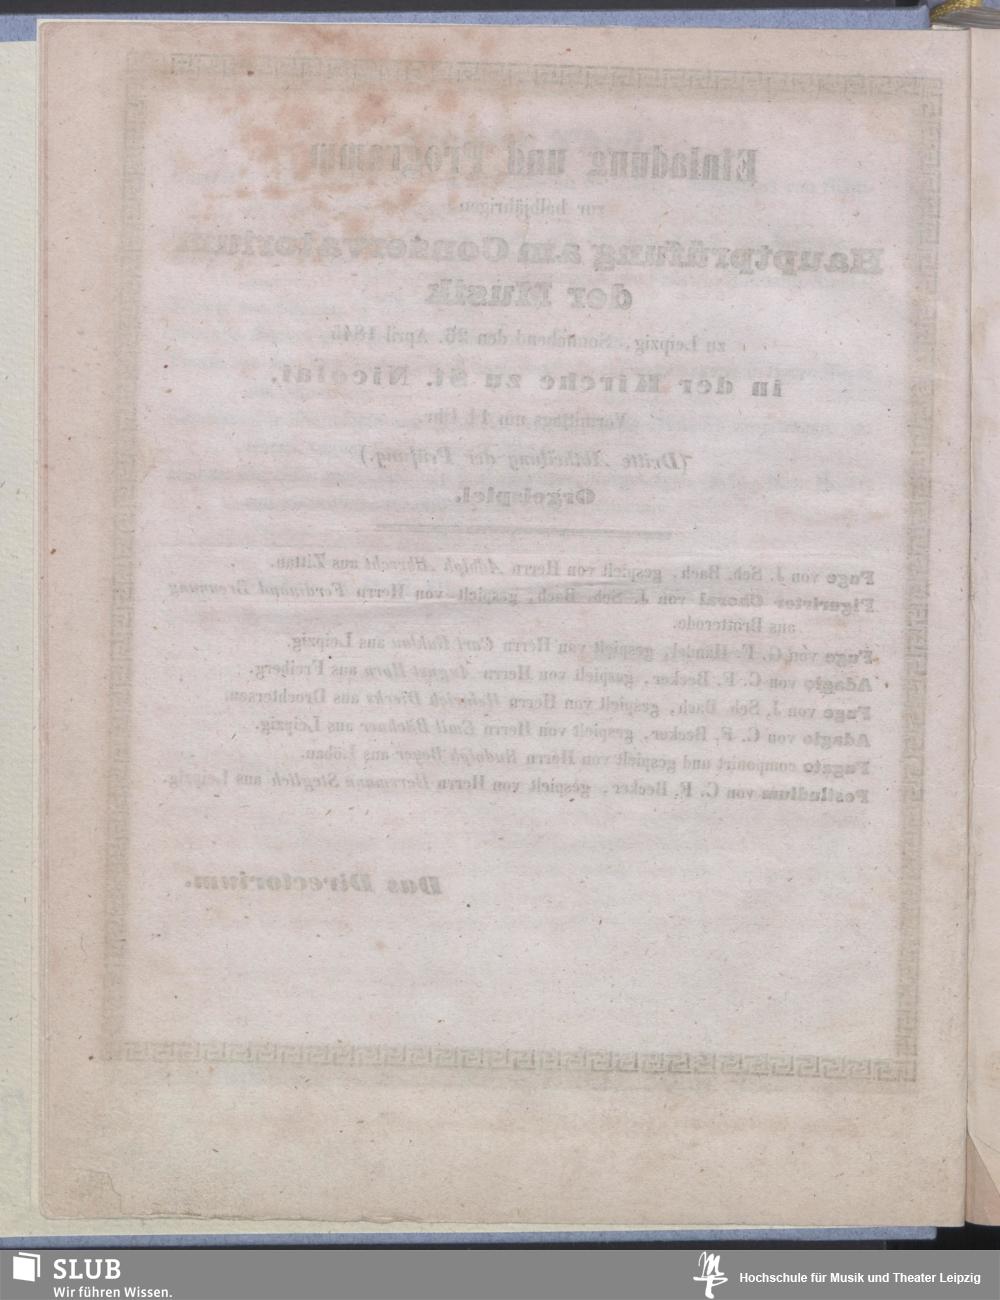 Einladung und Programm
zur halbjährigen
Hauptprüfung am Conservatorium
der Musik
zu Leipzig, Sonnabend den 26. April 1845
in der Kirche zu St. Nicolai,
Vormittags um 11 Uhr.
(Dritte Abtheilung der Prüfung.)
Orgelspiel.
Fuge von J. Seb. Bach, gespielt von Herrn Adolph Albrecht aus Zittau.
Figurirter Choral von J. Seb. Bach, gespielt von Herrn Ferdinand Breunung
aus Brotterode.
Fuge von G. F. Händel, gespielt von Herrn Carl aus Leipzig.
Adagio von C. F. Becker, gespielt von Herrn August Horn aus Freiberg.
Fuge von J. Seb. Bach, gespielt von Herrn Heinrich Diercks aus Drochtersen.
Adagio von C. F. Becker, gespielt von Herrn Emil Büchner aus Leipzig.
Fugato componirt und gespielt von Herrn Rudolph aus Löbau.
Postludium von C. F. Becker, gespielt von Herrn Herrmann Stieglich aus Leipzig.
Das Directorium.
SLUB
Wir führen Wissen.
Hochschule für Musik und Theater Leipzig